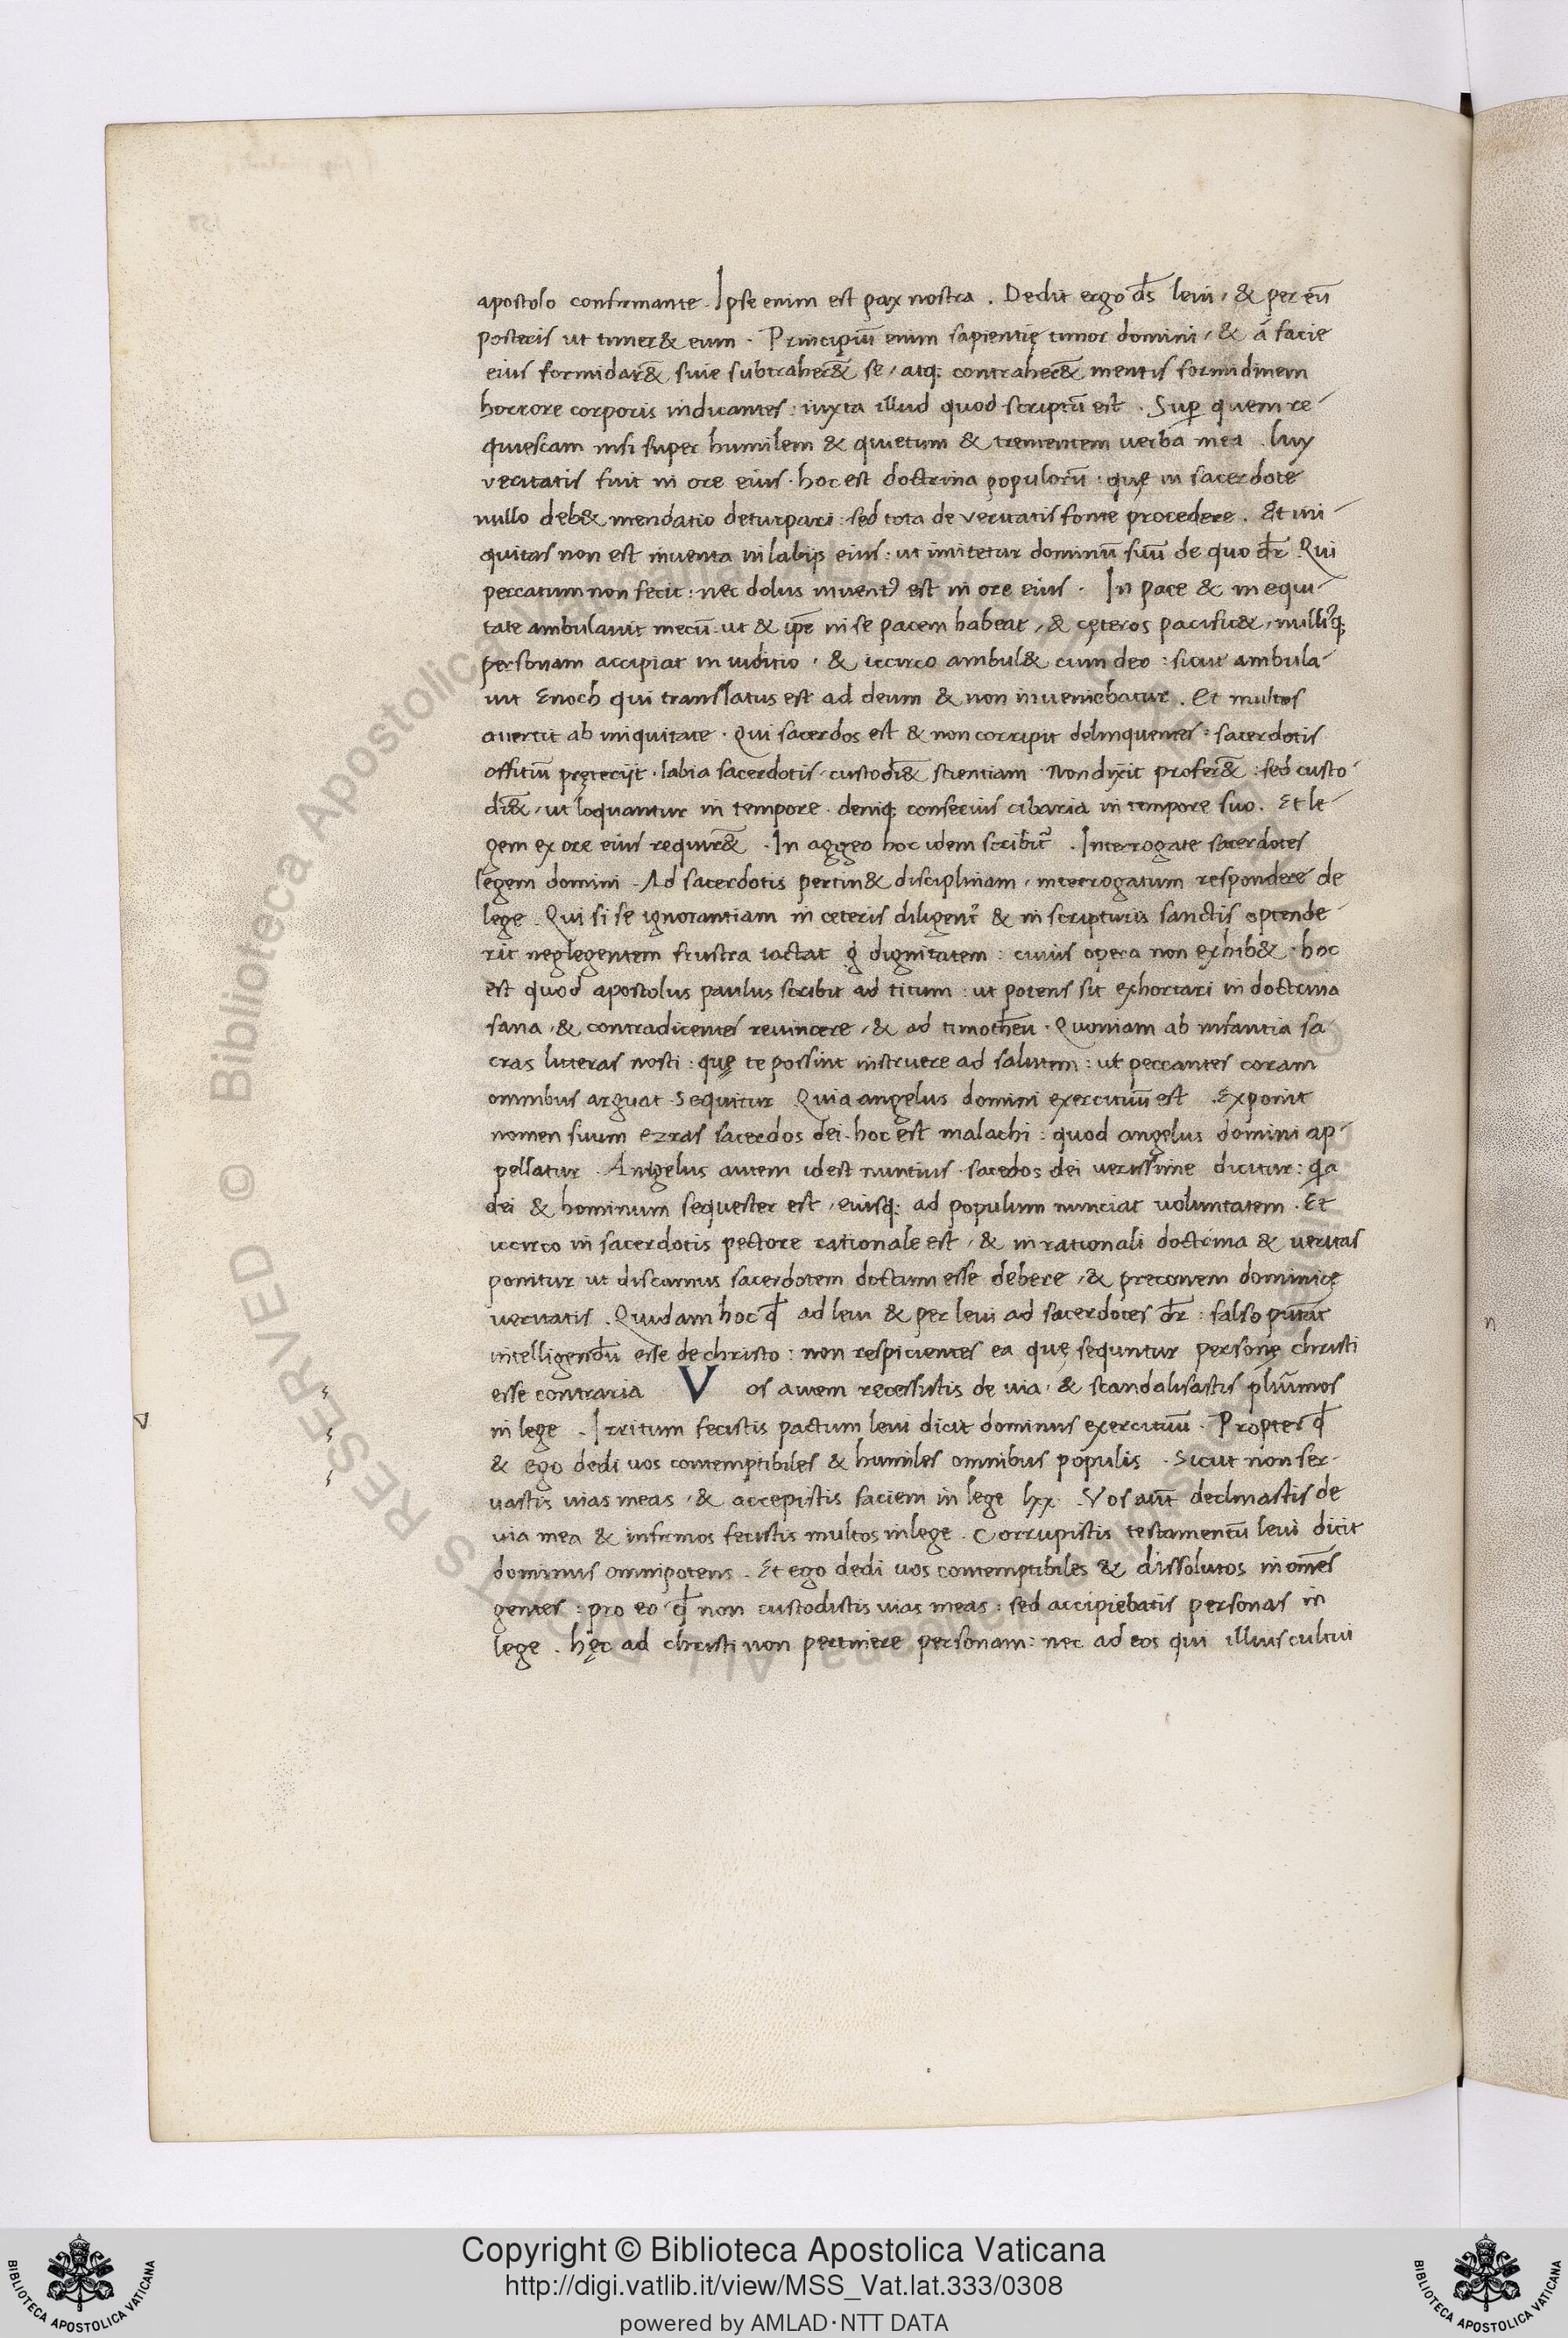 apostolo confirmante. Ipse enim est pax nostra. Dedit ergo ds̄ leui, & per eū
posteris ut timer& eum. Principiū enim sapientię timor domini, & á facie
eius formidar& siue subtraher& se, atq; contraher& mentis formidinem
horrore corporis indicantes: iuxta illud quod scriptū est. Sup quem re-
quiescam nisi super humilem & quietum & trementem uerba mea. lux
veritatis fuit in ore eius. hoc est doctrina populorū: quę in sacerdote
nullo deb& mendatio deturpari: sed tota de veritatis fonte procedere. Et ini-
quitas non est inuenta in labijs eius: ut imitetur dominū suū de quo dr̄. Qui
peccatum non fecit: nec dolus inuent᾽ est in ore eius. In pace & in equi-
tate ambulauit mecū. ut & ip̄e in se pacem habeat, & cęteros pacific&, nulli᾽q;
personam accipiat in iuditio, & iccirco ambul& cum deo: sicut ambula-
uit Enoch qui translatus est ad deum & non inueniebatur. Et multos
auertit ab iniquitate. Qui sacerdos est & non corripit delinquentes: sacerdotis
offitiū pręteriit. labia sacerdotis custodi& scientiam. Non dixit profer&: sed custo-
di&, ut loquantur in tempore. deniq; conseruis cibaria in tempore suo. Et le-
gem ex ore eius requir&. In aggeo hoc idem scribit᾽. Interrogate sacerdotes
legem domini. Ad sacerdotis pertin& disciplinam, interrogatum respondere de
lege. Qui si se ignorantiam in ceteris diligent᾽ & in scripturis sanctis optende-
rit neglegentem frustra iactat g̊ dignitatem: cuius opera non exhib&. hoc
est quod apostolus paulus scribit ad titum: ut potens sit exhortari in doctrina
sana, & contradicentes reuincere, & ad timotheū. Quoniam ab infantia sa
cras litteras nosti: quę te possint instruere ad salutem: ut peccantes coram
omnibus arguat. Sequitur Quia angelus domini exercituū est. Exponit
nomen suum ezras sacerdos dei. hoc est malachi: quod angelus domini ap-
pellatur. Angelus autem idest nuntius sacedos dei uerissime dicitur: qa
dei & hominum sequester est, eiusq; ad populum nunciat voluntatem. Et
iccirco in sacerdotis pectore rationale est, & in rationali doctrina & ueritas
ponitur ut discamus sacerdotem doctum esse debere, & preconem dominicę
ueritatis. Quidam hoc qd̄ ad leui & per leui ad sacerdotes dr̄: falso putāt
intelligendū esse de christo: non respicientes ea quę sequntur personę christi
esse contraria Vos autem recessistis de uia, & scandalisastis plurimos
in lege. Irritum fecistis pactum leui dicit dominus exercituū. Propter qd̄
& ego dedi uos contemptibiles & humiles omnibus populis. Sicut non ser-
uastis uias meas, & accepistis faciem in lege lxx. Vos aut̄ declinastis de
via mea & infirmos fecistis multos in lege. Corrupistis testamentū leui dicit
dominus omnipotens. Et ego dedi uos contemptibiles & dissolutos in om̄es
gentes: pro eo qd̄ non custodistis uias meas: sed accipiebatis personas in
lege. hęc ad christi non pertinere personam: nec ad eos qui illius cultui
Copyright © Biblioteca Apostolica Vaticana
http://digi.vatlib.it/view/MSS_Vat.lat.333/0308
powered by AMLAD·NTT DATA